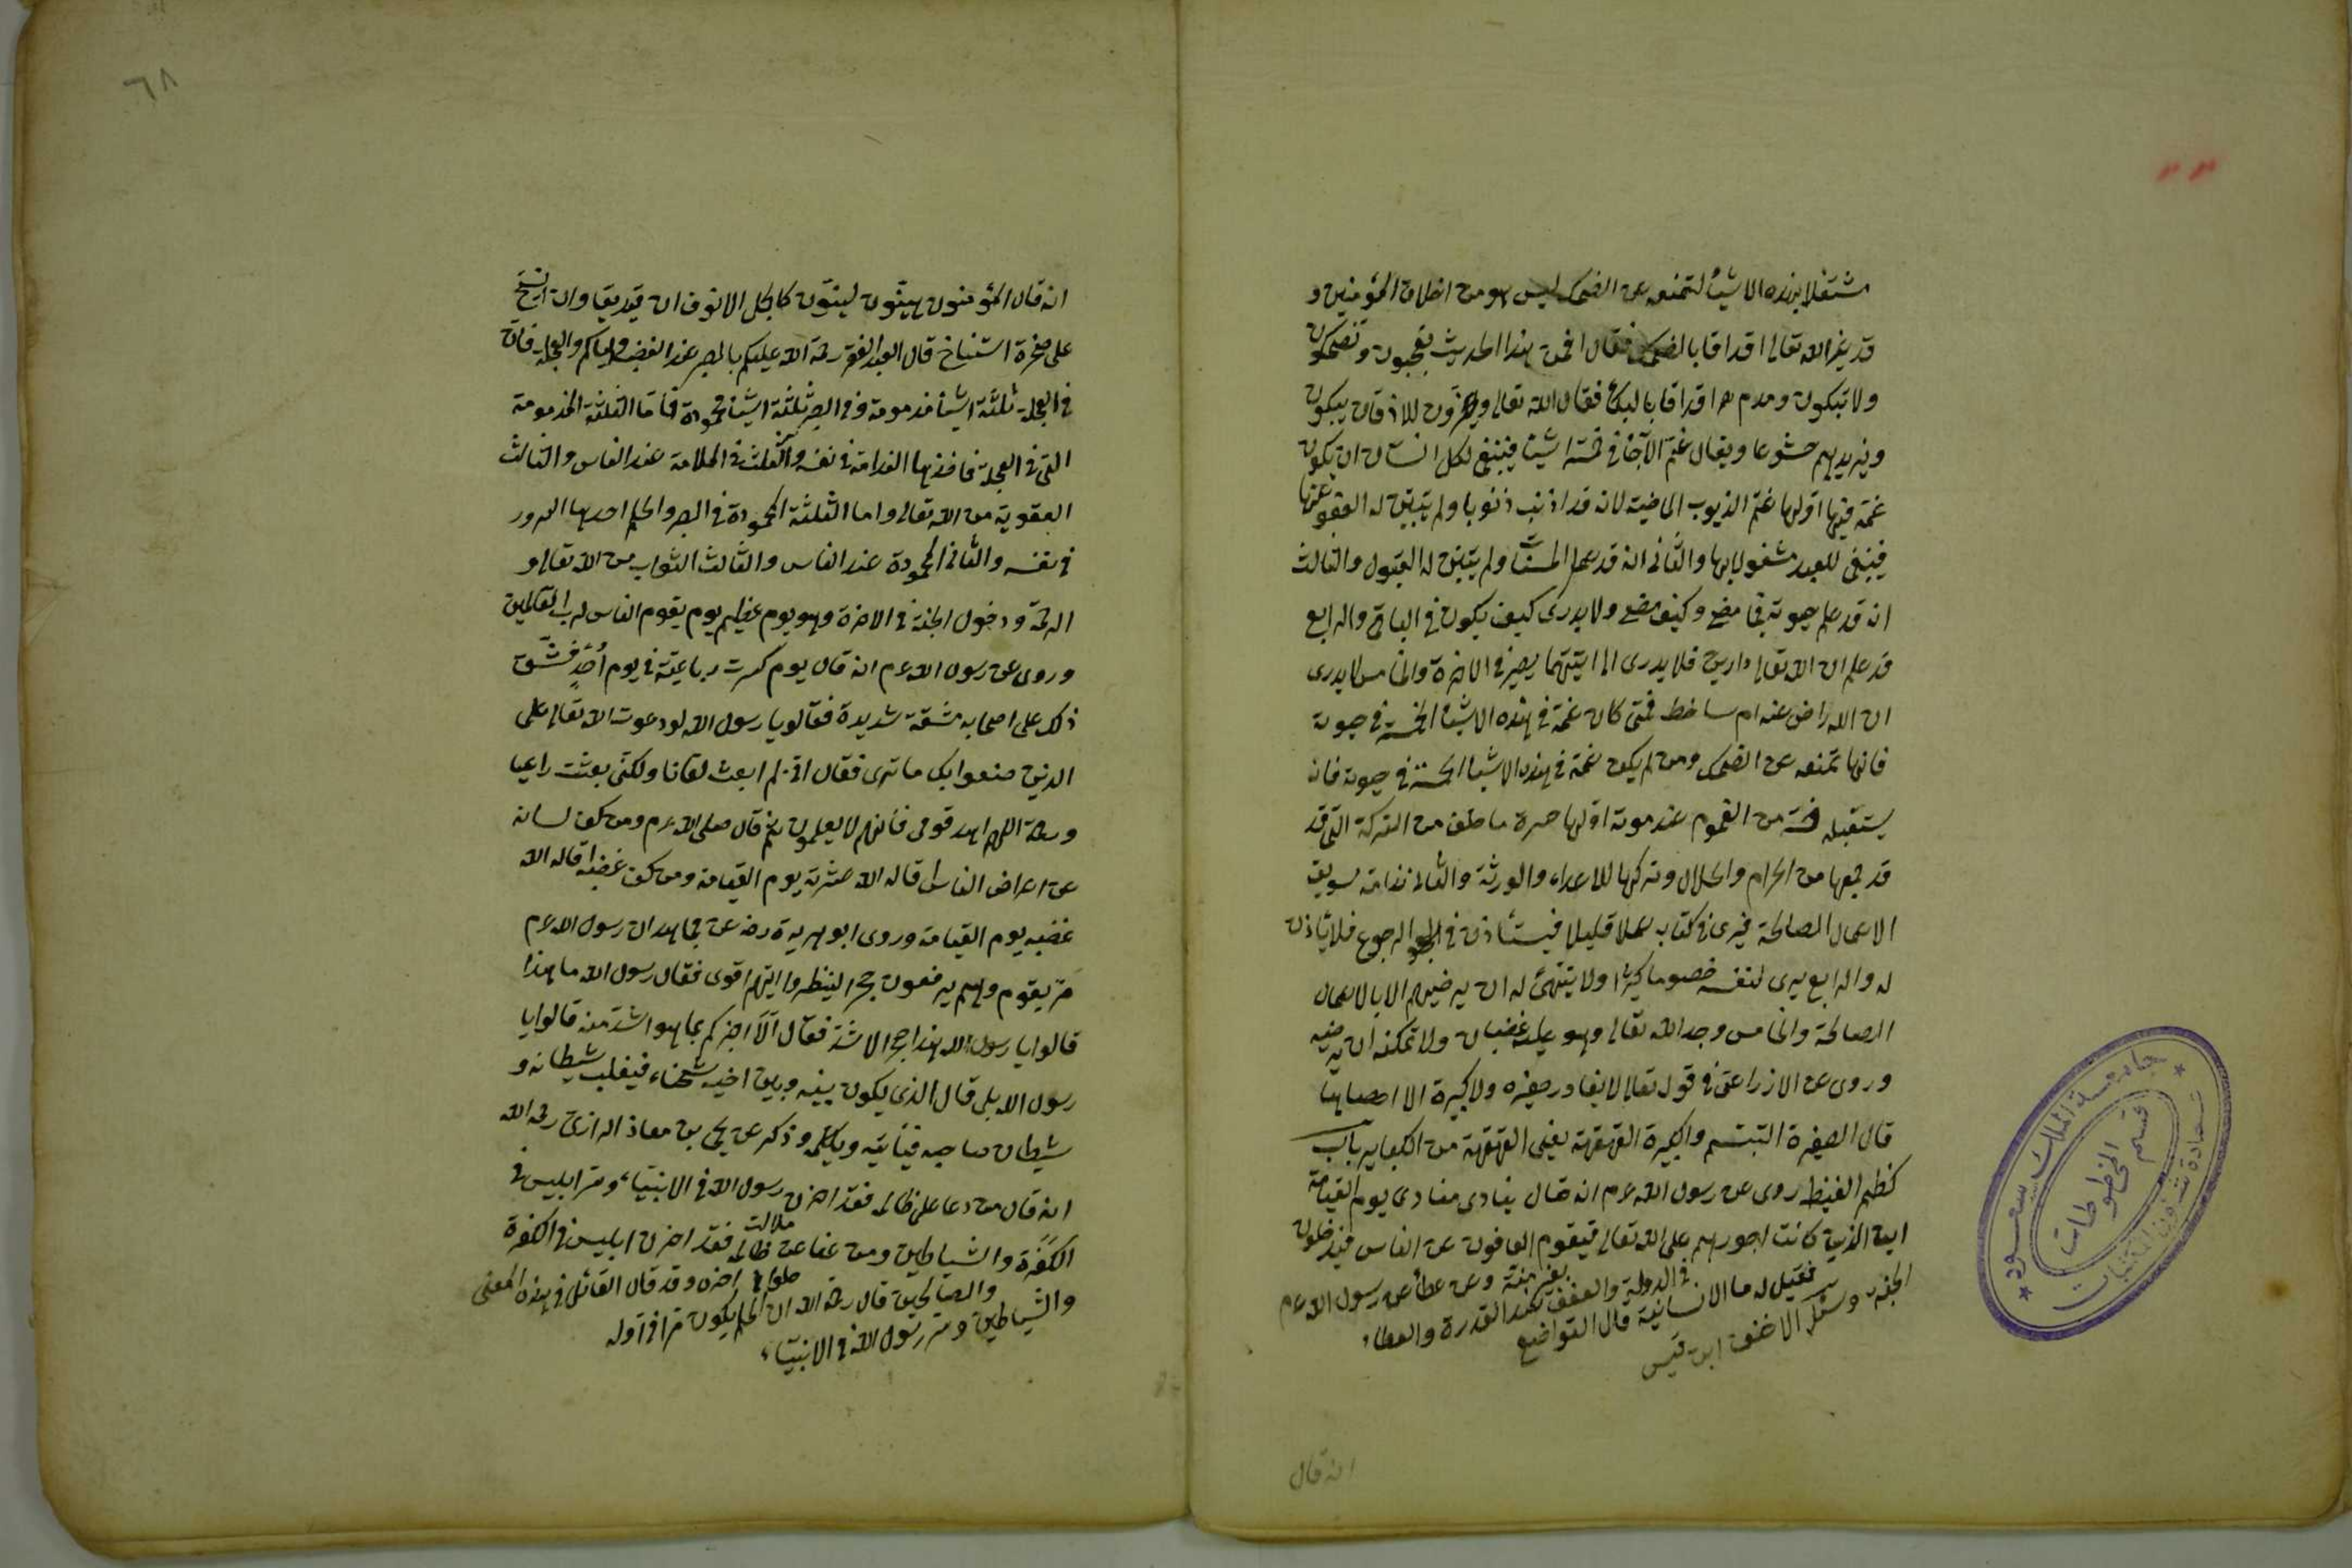 مشتغلا بهذه الاشياء لتمنعه عن الضحك ليس هو من اخلاق المؤمنين و
قد عير الله تعالى اقواما بالضحك فقال افمن هذا الحديث تعجبون وتضحكون
ولا تبكون ومدح اقواما بالبكاء فقال الله تعالى ويخرون للاذقان يبكون
ويزيدهم خشوعا ويقال غم الاحياء في خمسة اشيا فينبغي لكل انسان ان يكون
غمه فيها اولها غم الذنوب الماضية لانه قد اذنب ذنوبا ولم يتبين له العفو عنها
فينبغي للعبد مشغولا بها والثاني انه قد عمل الحسنات ولم يتبين له القبول والثالث
انه قد علم حيوته فيما مضى وكيف مضى ولا يدرى كيف يكون في الباقى والرابع
قد علم ان لله تعالى دارين فلا يدرى الى ايتهما يصير في الاخرة والخامس لا يدرى
ان الله راض عنه ام ساخط فمن كان غمه في هذه الاشيا الخمسة في حيوته
فانها تمنعه عن الضحك ومن لم يكن غمه في هذه الاشيا الخمسة في حيوته فانه
يستقبله خمسة من الغموم عند موته اولها حسرة ما خلف من التركة التي قد
قد جمعها من الحرام والحلال وتركها للاعداء والورثة والثانى ندامة تسويف
الاعمال الصالحة فيرى في كتابه عملا قليلا فيستأذن في الرجوع فلا يأذن
له والرابع يرى لنفسه خصوما كثيرا ولا يتهيئ له ان يرضيهم الا بالاعمال
الصالحة والخامس وجد الله تعالى وهو عليه غضبان ولا تمكنه ان يرضيه
وروى عن الاوزاعى في قوله تعالى لا يغادر صغيرة ولا كبيرة الا احصاها
قال الصغيرة التبسم والكبيرة القهقهة يعنى القهقهة من الكباير باب
كظم الغيظ روى عن رسول الله عم انه قال ينادى منادى يوم القيامة
اين الذين كانت اجورهم على الله تعالى فيقوم العافون عن الناس فيدخلون
الجنة وسئل الاحنف ابن قيس
فقيل له ما الانسانية قال التواضع
في الدولة والعفو عند القدرة والعطاء
بغير منة وعن عطاء عن رسول الله عم
انه قال
٦٨
انه قال المؤمنون هينون لينون كالجمل الانوف ان قيد يقاد وان انيخ
على صخرة استناخ قال العبد الفقير رحمة الله عليكم بالصبر عند الغضب واياكم والعجلة فان
في العجلة ثلثة اشيا مذمومة وفي الصبر ثلثة اشيا محمودة فاما الثلثة المذمومة
التى في العجلة فاحدها الندامة في نفسه والثانى الملامة عند الناس والثالث
العقوبة من الله تعالى واما الثلثة المحمودة في الصبر والحلم احدها السرور
في نفسه والثانى المحمودة عند الناس والثالث الثواب من الله تعالى و
الرحمة ودخول الجنة في الاخرة وهو يوم عظيم يوم يقوم الناس لرب العالمين
وروى عن رسول الله عم انه قال يوم كسرت رباعيته في يوم احد فشق
ذلك على اصحابه مشقة شديدة فقالو يا رسول الله لو دعوت الله تعالى على
الذين صنعوا بك ما ترى فقال انى لم ابعث لعانا ولكنى بعثت داعيا
ورحمة اللهم اهد قومى فانهم لا يعلمون ثم قال صلى الله عم ومن كف لسانه
عن اعراض الناس اقاله الله عثرته يوم القيامة ومن كف غضبه اقاله الله
غضبه يوم القيامة وروى ابو هريرة رضه عن مجاهد ان رسول الله عم
مر بقوم وهم يرفعون حجرا لينظروا ايهم اقوى فقال رسول الله ما هذا
قالوا يا رسول الله هذا حجر الاشد فقال الا اخبركم بما هو اشد منه قالوا يا
رسول الله بلى قال الذى يكون بينه وبين اخيه شحناء فيغلب شيطانه و
شيطان صاحبه فيأتيه ويكلمه وذكر عن يحى بن معاذ الرازى رحمه الله
انه قال من دعا على ظالمه فقد احزن رسول الله في الانبياء وسر ابليس في
الكفرة والشياطين ومن عفا عن ظالمه فقد احزن ابليس في الكفرة
والشياطين وسر رسول الله في الانبياء
والصالحين قال رحمة الله ان الحلم يكون مرا في اوله
حلوا في اخره وقد قال القائل في هذه المعنى
جامعة الملك سعود
عمادة شؤون المكتبات
قسم المخطوطات